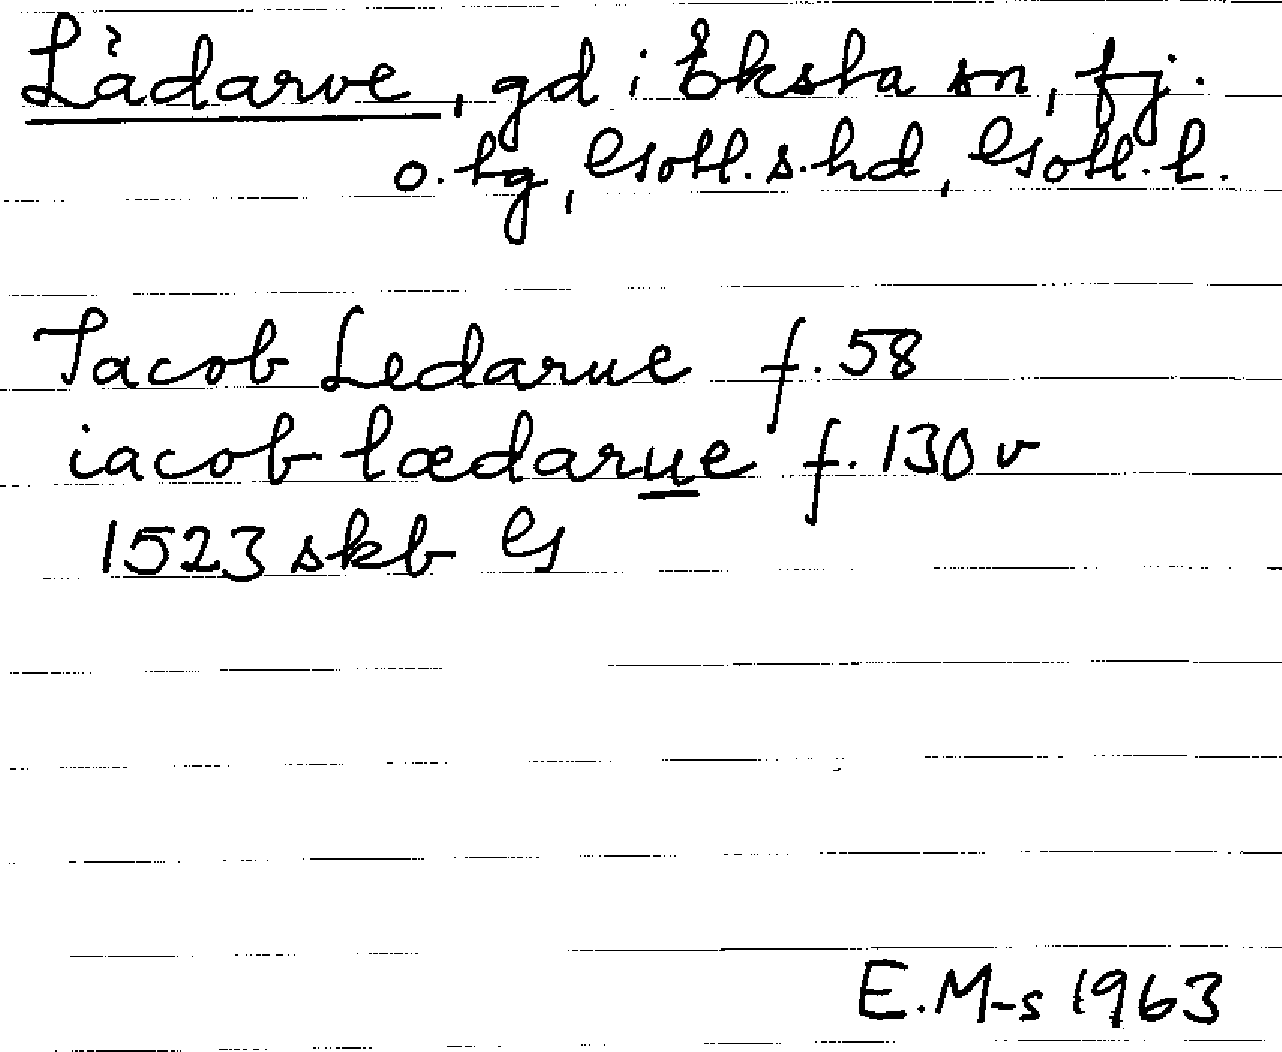 Lädarve, gd i Eksta sn, fj.
o. tg, Gotl. s. hd, Gotl. l.
Jacob Ledarue f. 58
iacob lædarue f. 130 v
1523 skb G
E. M-s 1963